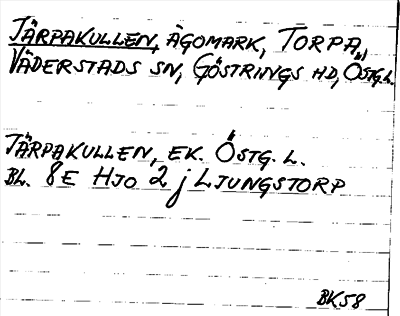 JÄRPAKULLEN, ÄGOMARK, TORPA,
VÄDERSTADS SN, GÖSTRINGS HD, ÖSTG.L.
JÄRPAKULLEN, EK. ÖSTG. L.
BL. 8E HJO 2 j LJUNGSTORP
BK58